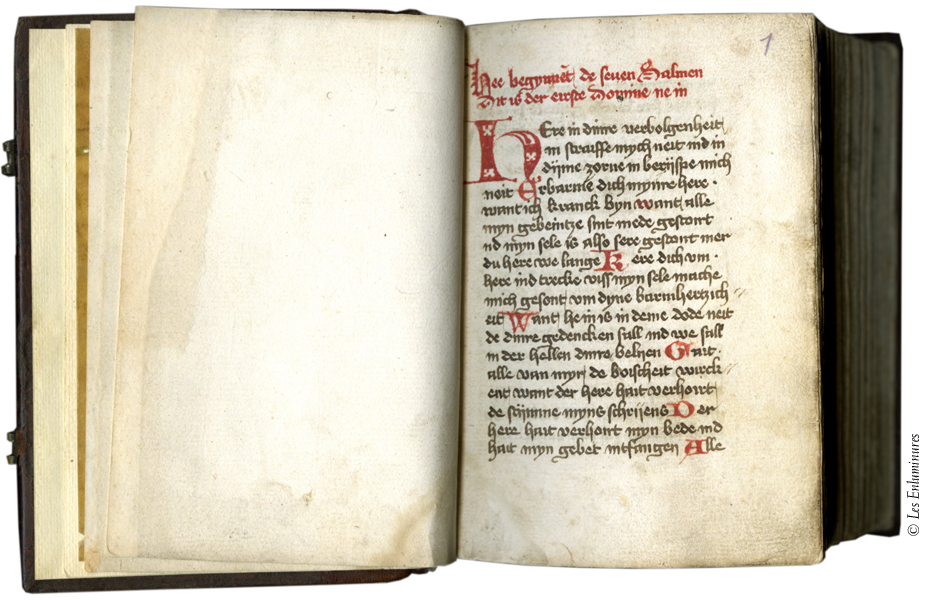 1
Hee begynnet de seven Salmen
Dit is der eirste Domine ne in
HEre in dinre verbolgenheit
in straiffe mych neit ind in
dijme zorne in berijspe mich
neit Erbarme dich mynre here ·
want ich kranck byn want alle
myn gebeintze sint mede gestoirt
ind myn sele is also sere gestoirt mer
du here we lange Kere dich vm ·
here ind trecke viss myn sele mache
mich gesont vm dyne barmhertzich
eit Want he in is in deme dode neit
de dinre gedencken sall ind we sall
in der hellen dinre belijen Gait ·
alle van myr de boischeit wirck
ent want der here hait verhoirt
de stijmme myns schrijens Der
here hait verhoirt myn bede ind
hait myn gebet intfangen Alle
© Les Enluminures